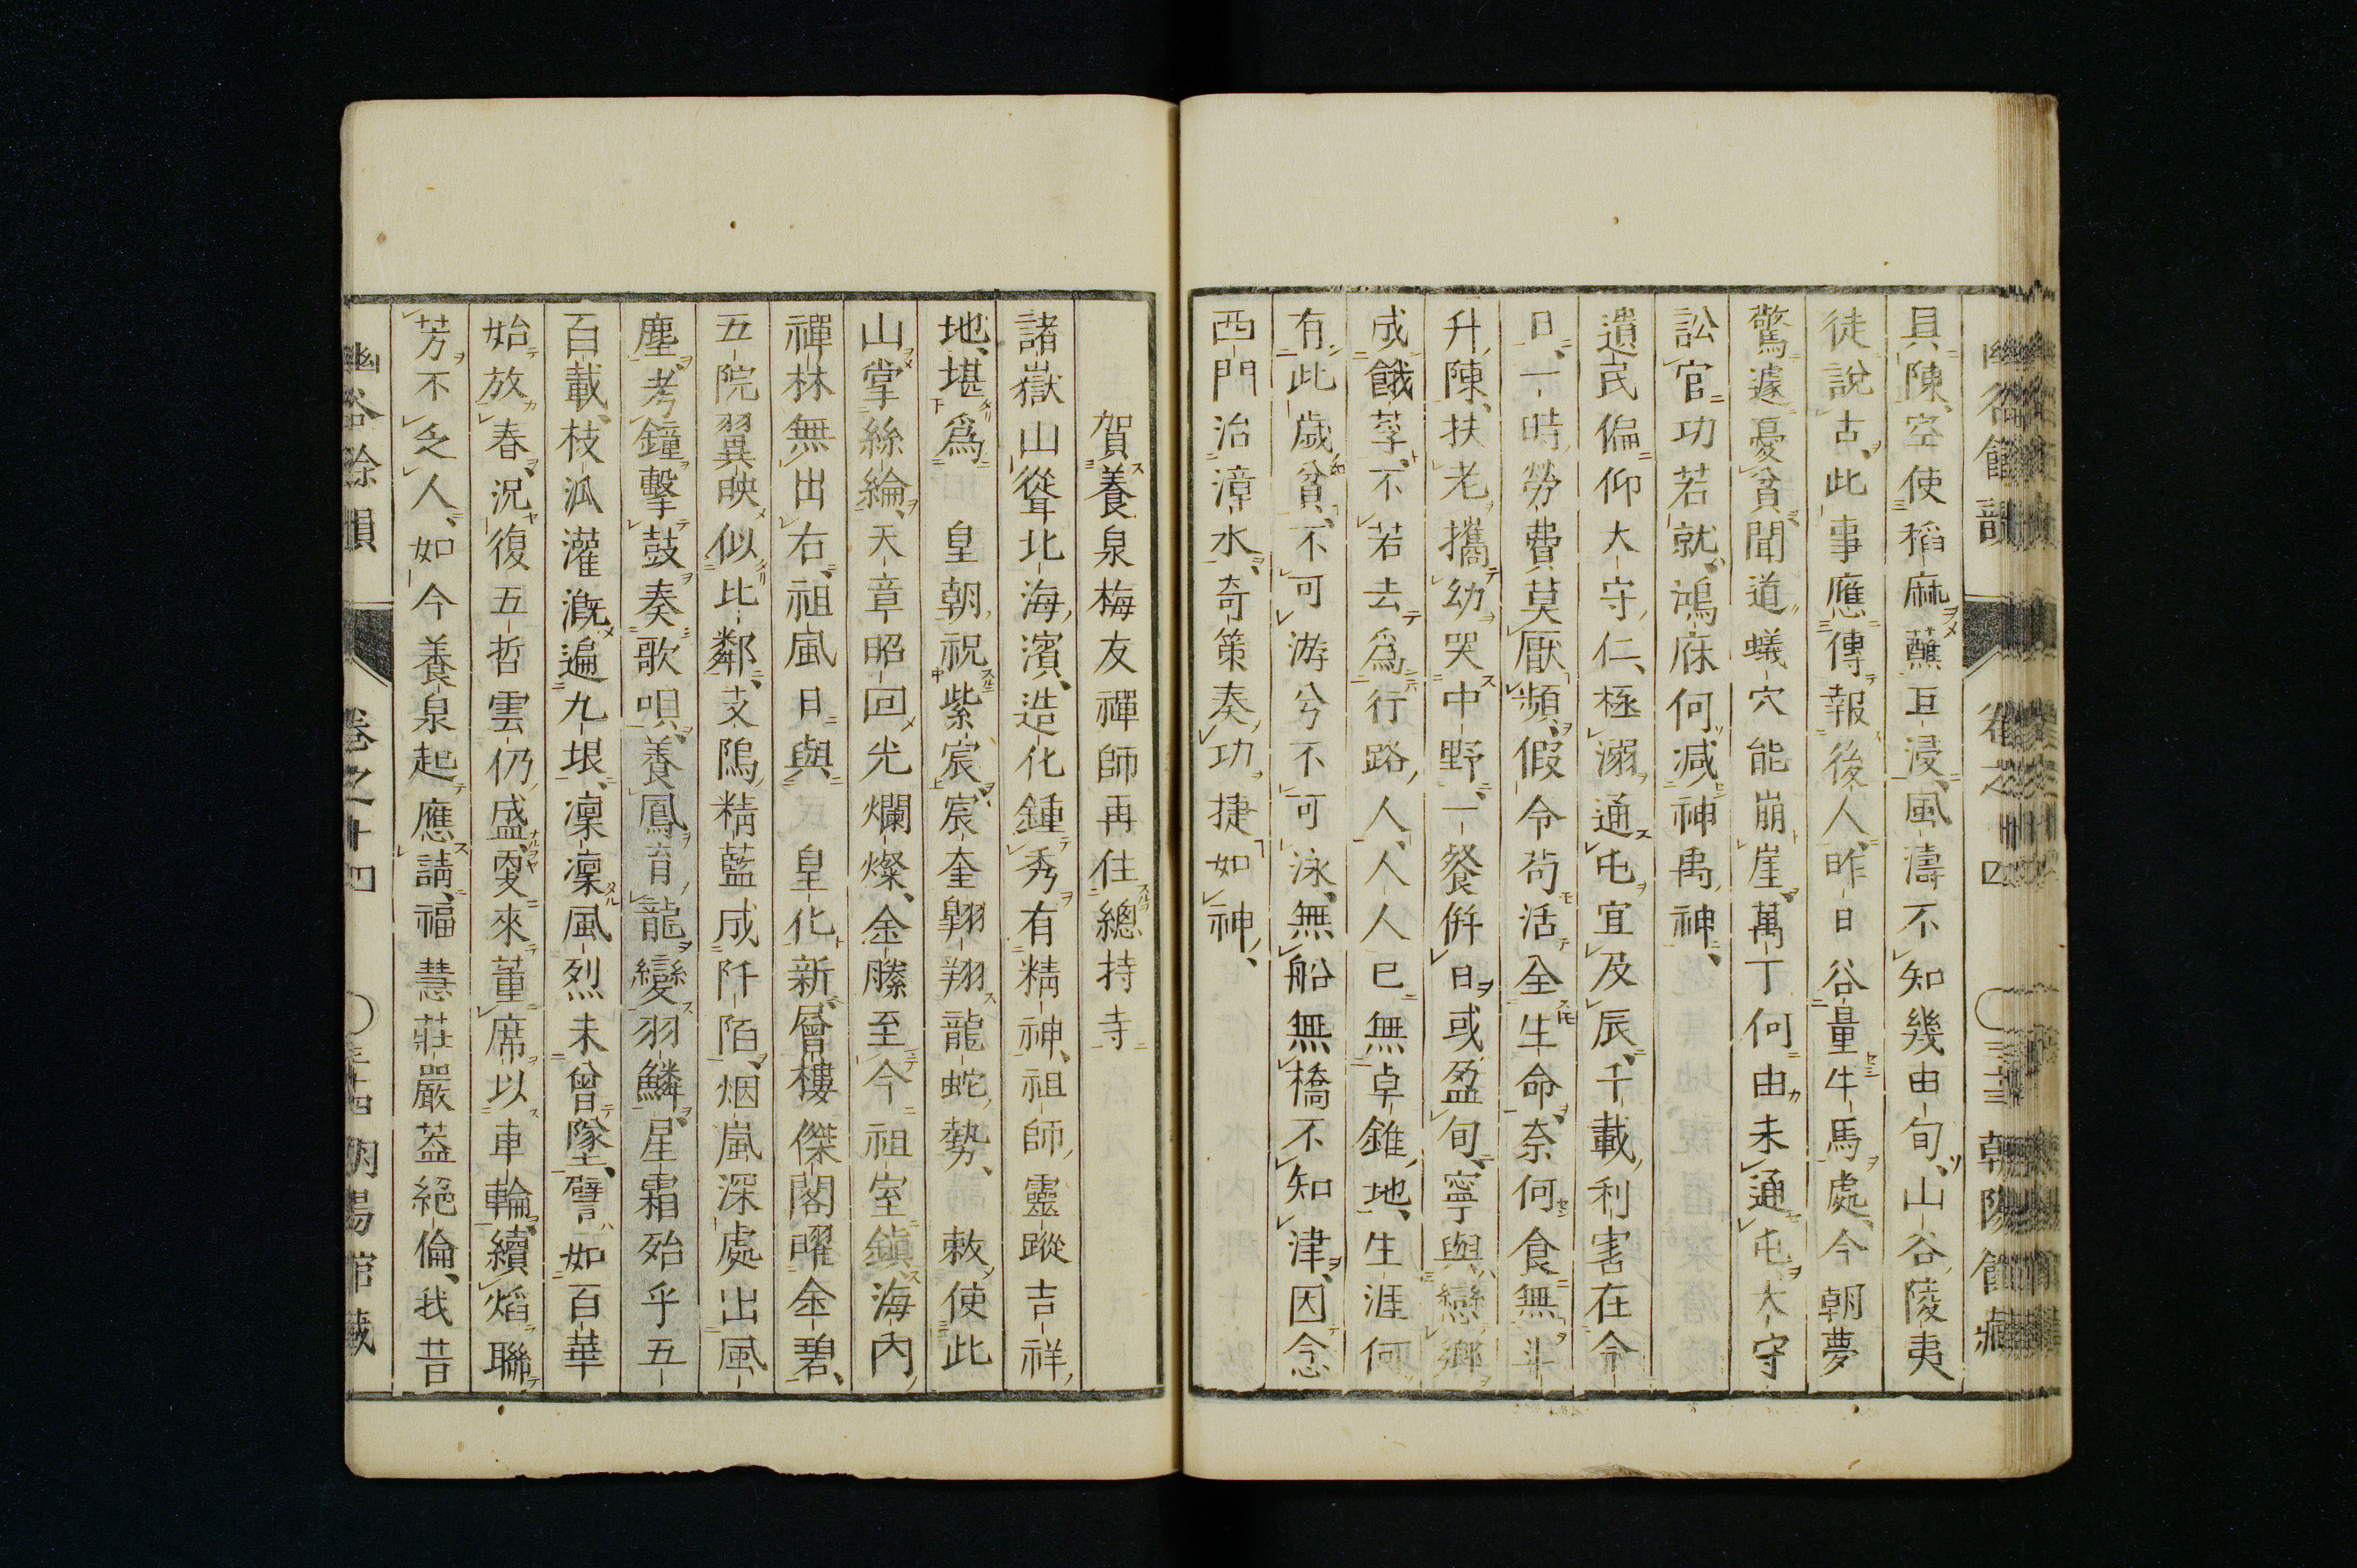 具陳空使稻麻蘸互浸風濤不知幾由旬山谷陵夷
徒說古此事應傳報後人昨日谷量牛馬處今朝夢
驚遽憂貧聞道蟻穴能崩崖萬丁何由未通屯太守
訟官功若就鴻庥何減神禹神
遺民偏仰大守仁極溺通屯宜及辰千載利害在今
日一時勞費莫厭頻假令苟活全生命奈何食無斗
升陳扶老攜幼哭中野一餐併日或盈旬寧與戀鄉
成餓莩不若去爲行路人人人已無卓錐地生涯何
有此歲貧不可游兮不可泳無船無橋不知津因念
西門治漳水奇策奏功捷如神
賀養泉梅友禪師再住總持寺
諸嶽山聳北海濱造化鍾秀有精神祖師靈蹤吉祥
地堪爲 皇朝祝紫宸宸奎翱翔龍蛇勢 敕使此
山掌絲綸天章昭回光爛燦金縢至今祖室鎭海內
禪林無出右祖風日與 皇化新層樓傑閣曜金碧
五院翼映似比鄰支隖精藍成阡陌烟嵐深處出風
塵考鐘擊鼓奏歌唄養鳳育龍變羽鱗星霜殆乎五
百載枝派灌漑遍九垠凜凜風烈未曾墜譬如百華
始放春況復五哲雲仍盛爰來董席以車輪續焰聯
芳不乏人如今養泉起應請福慧莊嚴蓋絕倫我昔
幽谷餘韻 卷之十四 三十四 朝陽館藏